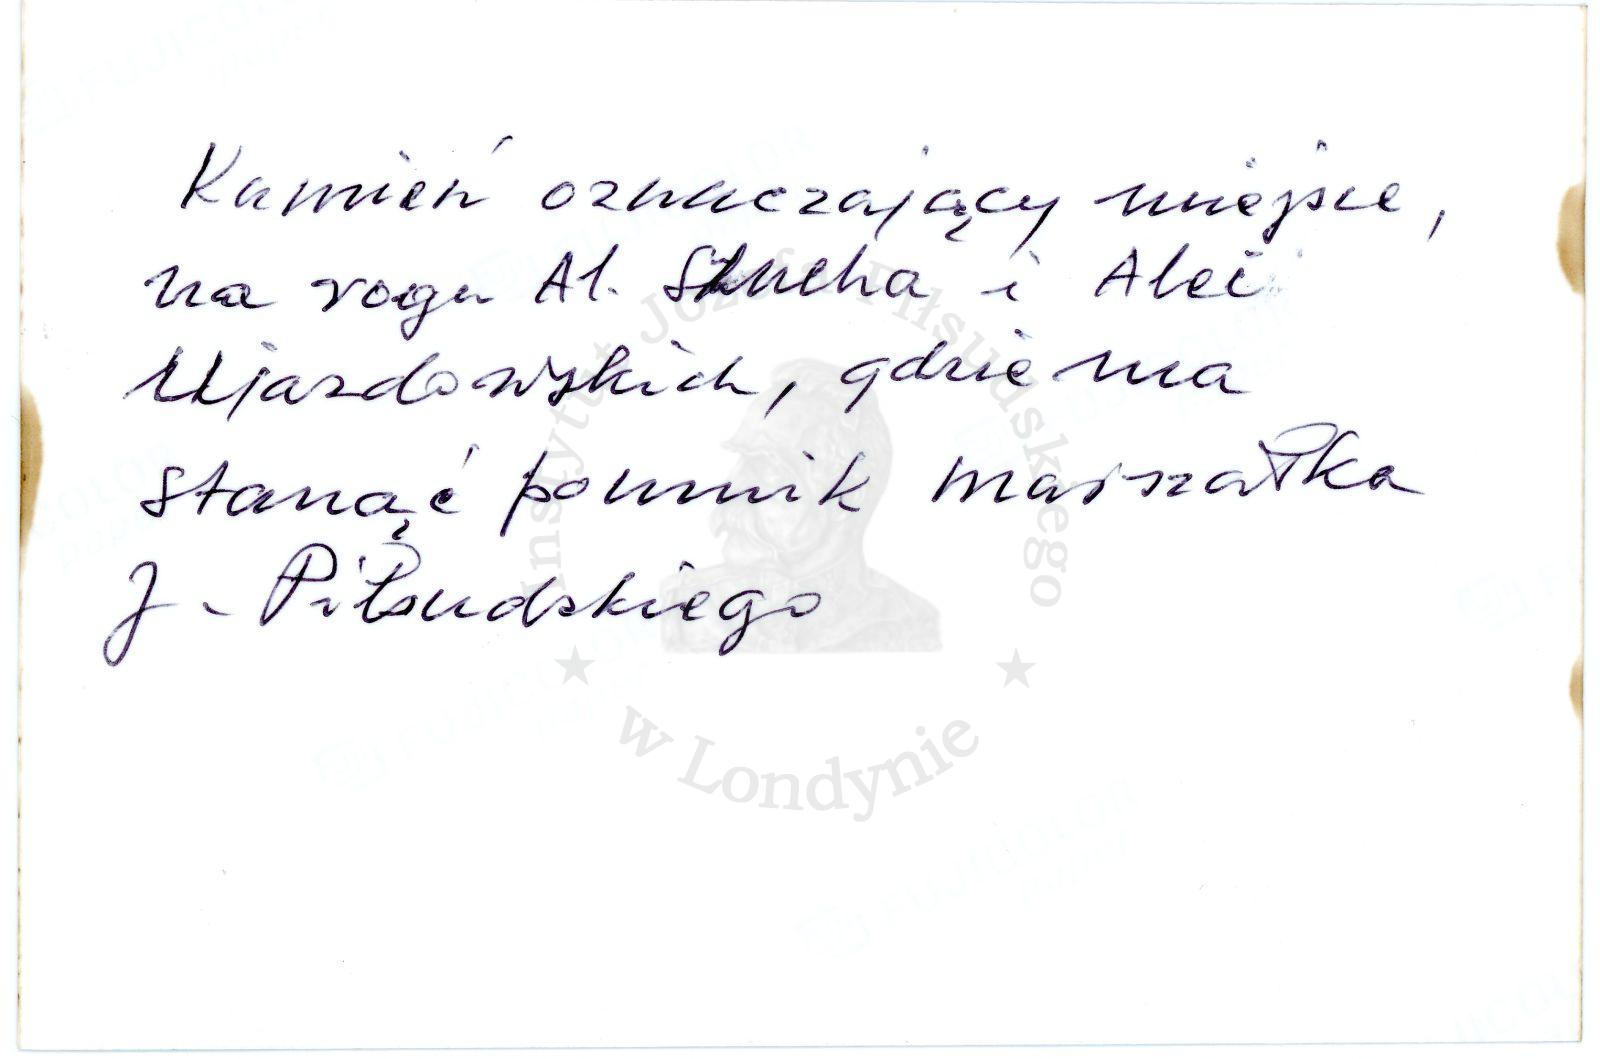 Kamień oznaczający miejsce,
na rogu Al. Szucha i Alei
Ujazdowskich, gdzie ma
stanąć pomnik marszałka
J. Piłsudskiego
Instytut Józefa Piłsudskiego
w Londynie